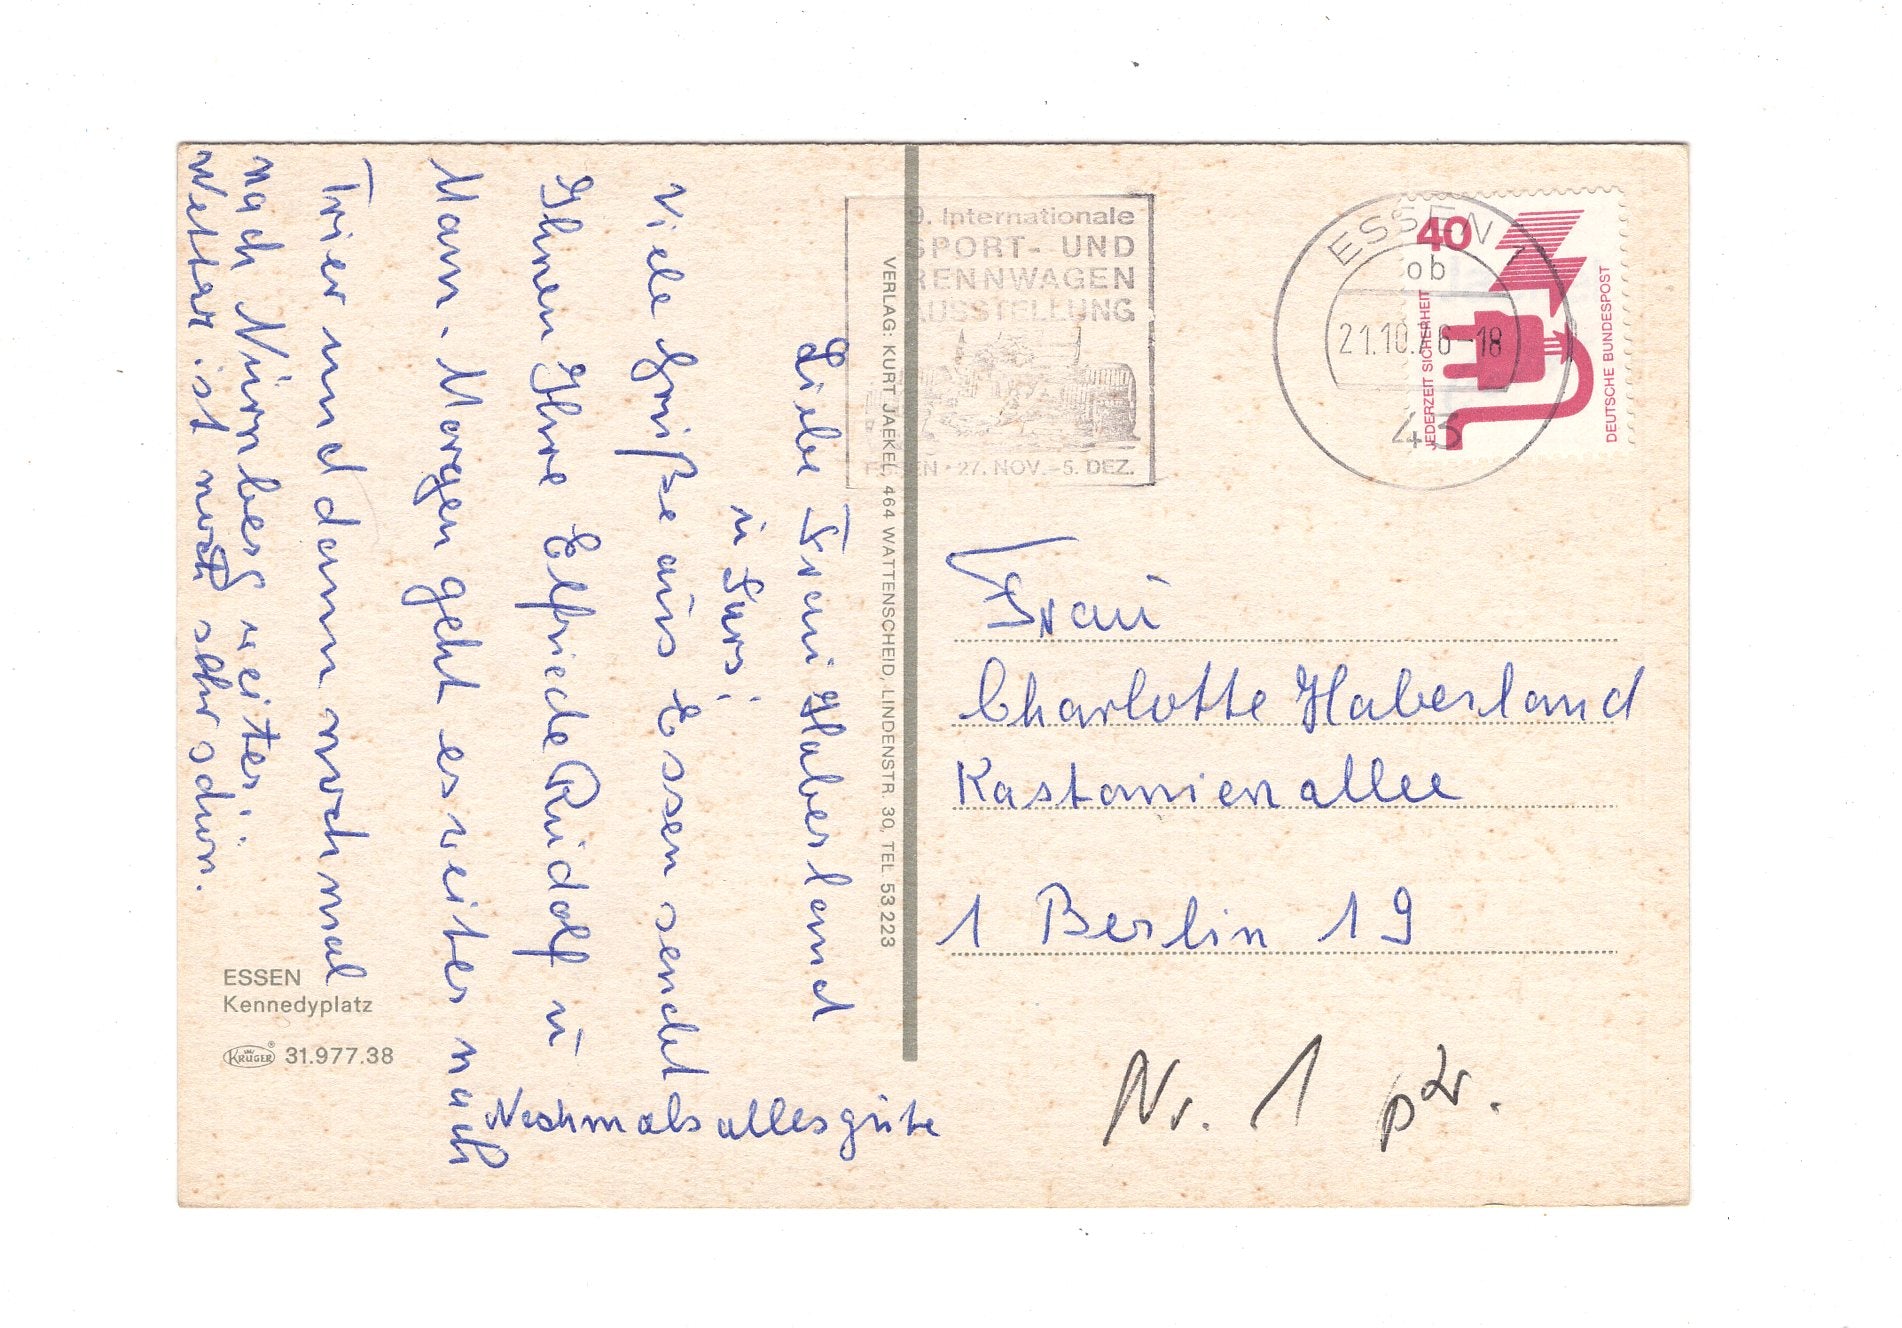 Liebe Frau Haberland
u
Viele Grüße aus Essen sendet
Ihnen Ihre Elfriede Rudolf u
Mann. Morgen geht es weiter nach
Trier und dann noch mal
nach Nürnberg weiter.
Wetter ist noch sehr schön.
Nochmals alles gute
ESSEN
Kennedyplatz
KRÜGER® 31.977.38
VERLAG: KURT JAEKEL, 464 WATTENSCHEID, LINDENSTR. 30, TEL 53 223
9. Internationale
SPORT- UND
RENNWAGEN
AUSSTELLUNG
ESSEN · 27. NOV. - 5. DEZ.
ESSEN 1
ob
21.10.76-18
43
40
JEDERZEIT SICHERHEIT
DEUTSCHE BUNDESPOST
Frau
Charlotte Haberland
Kastanienallee
1 Berlin 19
Nr. 1